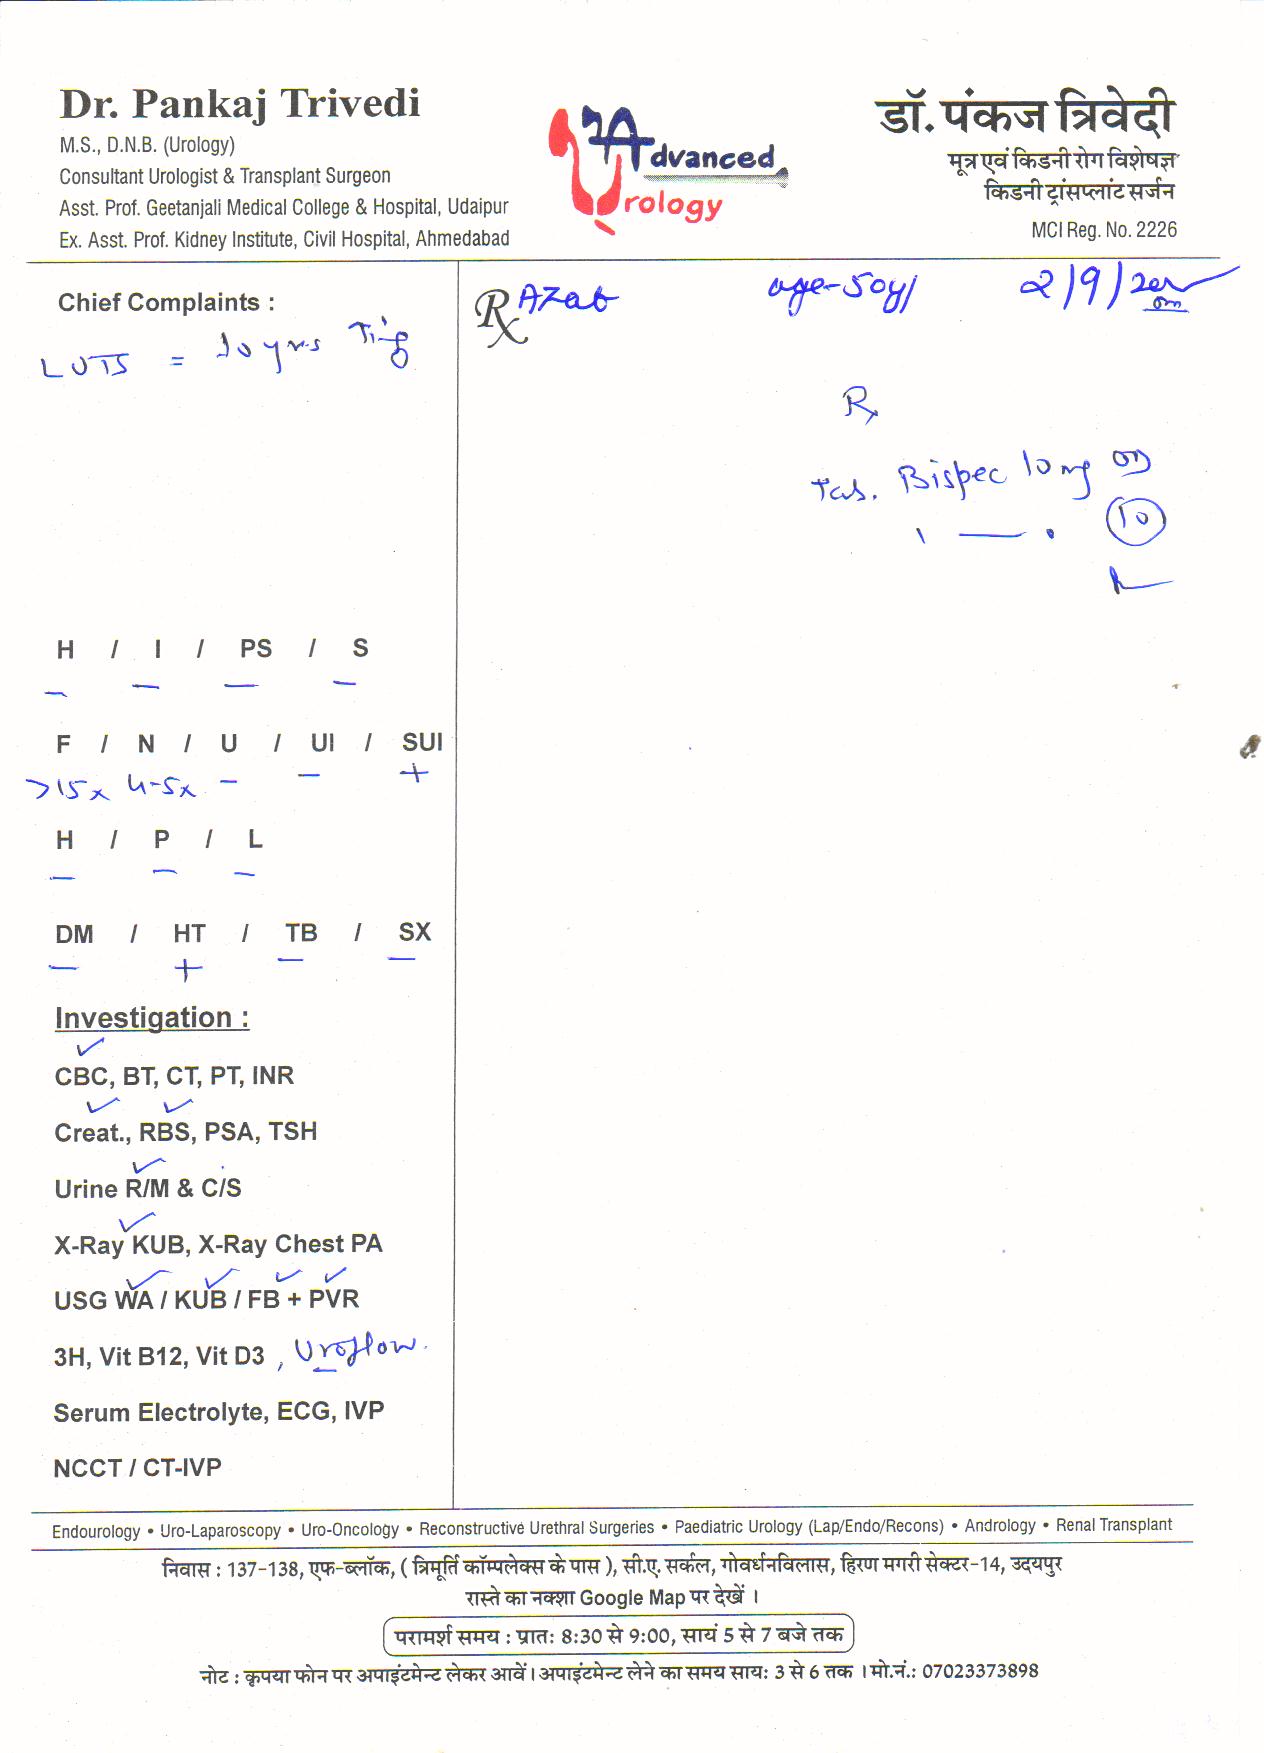 Dr. Pankaj Trivedi
M.S., D.N.B. (Urology)
Consultant Urologist & Transplant Surgeon
Asst. Prof. Geetanjali Medical College & Hospital, Udaipur
Ex. Asst. Prof. Kidney Institute, Civil Hospital, Ahmedabad
Advanced
Urology
डॉ. पंकज त्रिवेदी
मूत्र एवं किडनी रोग विशेषज्ञ
किडनी ट्रांसप्लांट सर्जन
MCI Reg. No. 2226
Chief Complaints :
LUTS = 10 yrs
Rx Azab age-50y/ 2/9/
Rx
Tab. Bispec long OD
1 — . 10
H / I / PS / S
– – – –
F / N / U / UI / SUI
>15x 4-5x – – +
H / P / L
– – –
DM / HT / TB / SX
– + – –
Investigation :
✓
CBC, BT, CT, PT, INR
✓ ✓
Creat., RBS, PSA, TSH
✓
Urine R/M & C/S
✓
X-Ray KUB, X-Ray Chest PA
✓ ✓ ✓ ✓
USG WA / KUB / FB + PVR
3H, Vit B12, Vit D3 , Uroflow.
Serum Electrolyte, ECG, IVP
NCCT / CT-IVP
Endourology • Uro-Laparoscopy • Uro-Oncology • Reconstructive Urethral Surgeries • Paediatric Urology (Lap/Endo/Recons) • Andrology • Renal Transplant
निवास : 137-138, एफ-ब्लॉक, ( त्रिमूर्ति कॉम्पलेक्स के पास ), सी.ए. सर्कल, गोवर्धनविलास, हिरण मगरी सेक्टर-14, उदयपुर
रास्ते का नक्शा Google Map पर देखें ।
परामर्श समय : प्रातः 8:30 से 9:00, सायं 5 से 7 बजे तक
नोट : कृपया फोन पर अपाइंटमेन्ट लेकर आवें । अपाइंटमेन्ट लेने का समय सायः 3 से 6 तक । मो.नं.: 07023373898